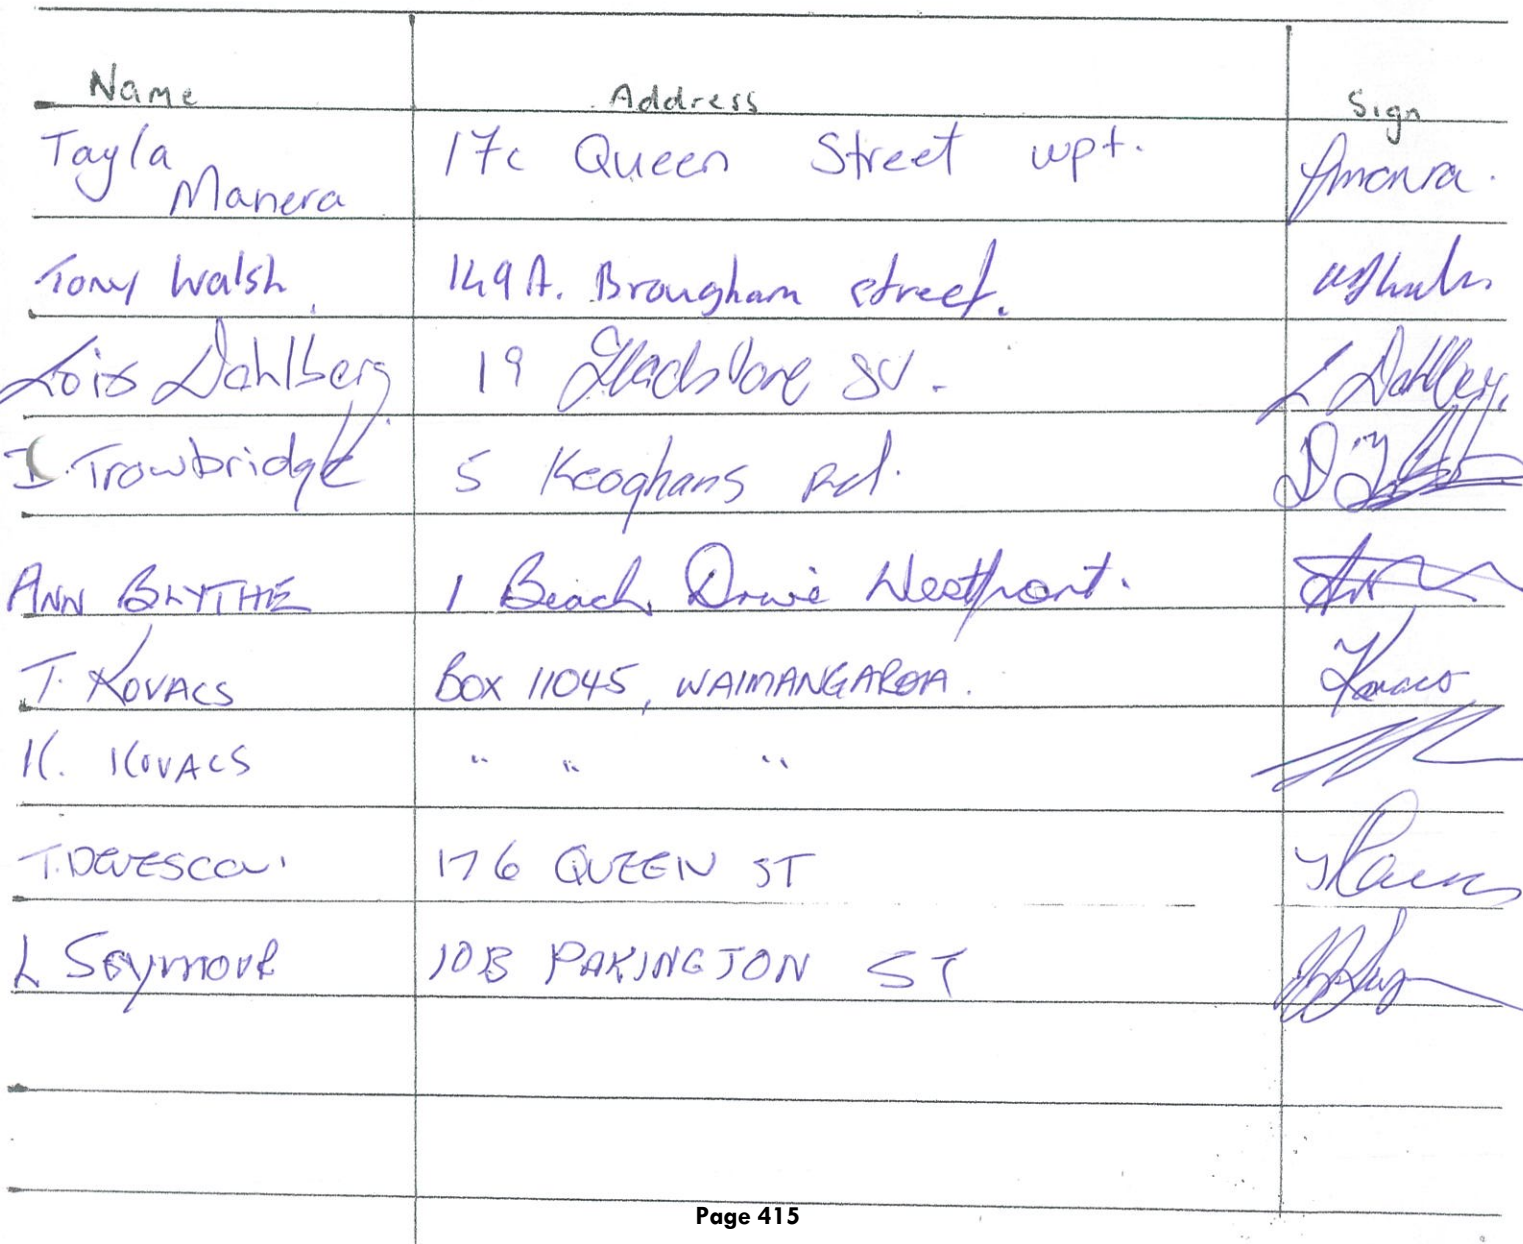 Name Address Sign
Tayla 17c Queen Street wpt.
Manera
Tony Walsh. 149A. Brougham street.
Lois Dahlberg 19 Gladstone St. L Dahlberg
D. Trowbridge 5 Keoghans Rd.
ANN BLYTHE 1 Beach Drive Westport.
T. KOVACS BOX 11045, WAIMANGAROA. Kovacs
K. KOVACS " " "
T. DEVESCOVI 176 QUEEN ST
L Seymour 10B PAKINGTON ST
Page 415